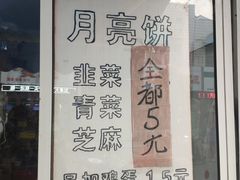 月亮饼
韭菜
青菜
芝麻
全都5元
另加鸡蛋 1.5元